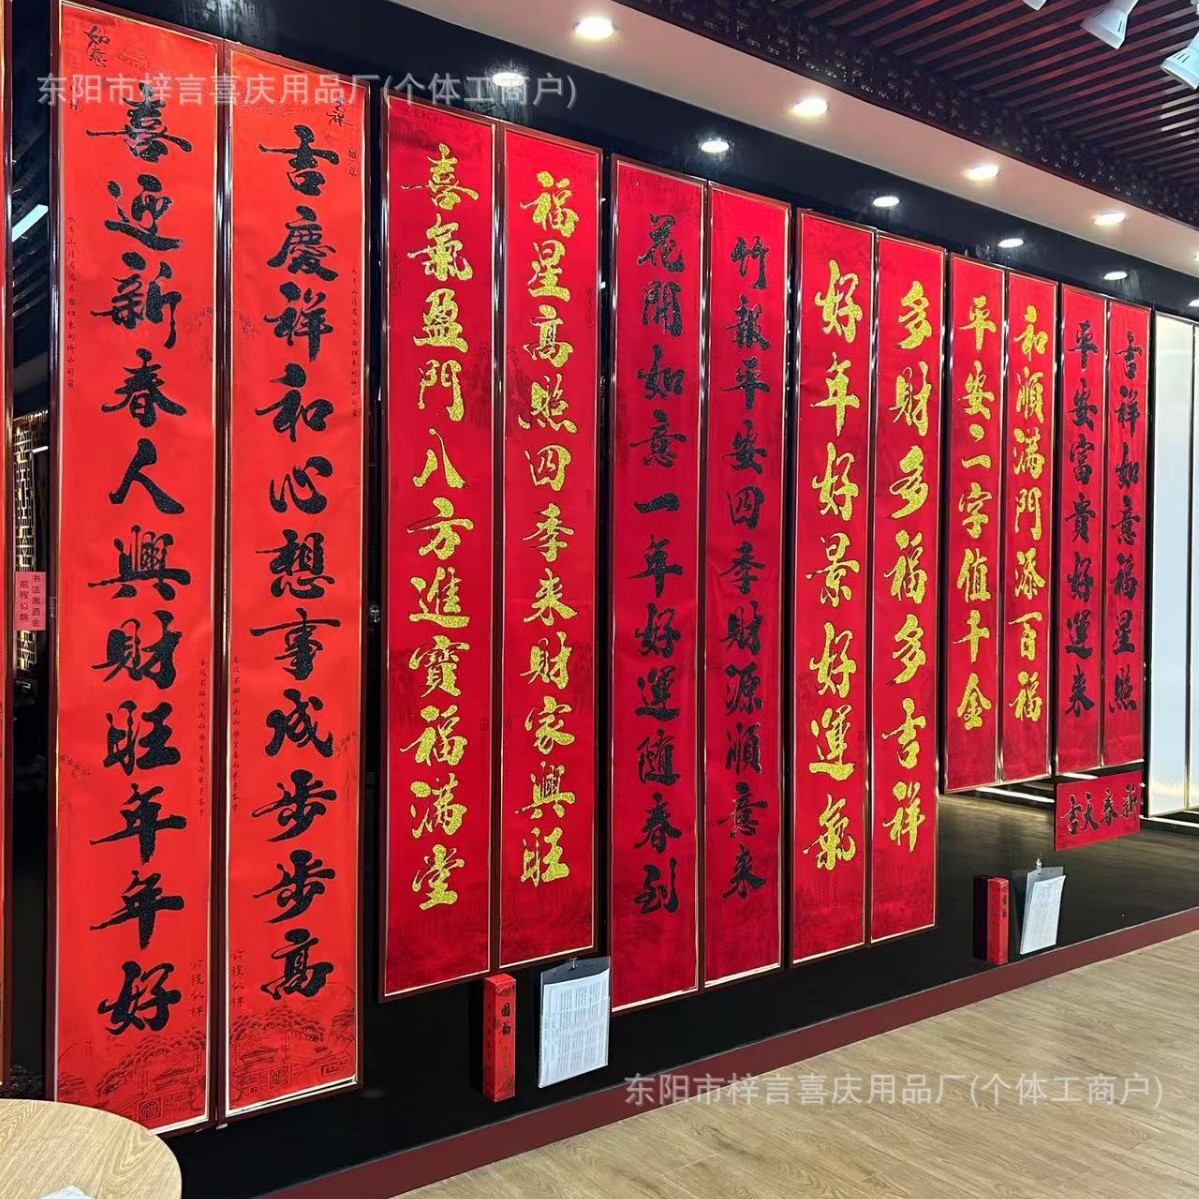 东阳市梓言喜庆用品厂(个体工商户)
如意
喜迎新春人興財旺年年好
吉慶祥和心想事成步步高
喜氣盈門八方進寶福满堂
福星高照四季来財家興旺
花開如意一年好運随春到
竹報平安四季財源順意来
好年好景好運氣
多財多福多吉祥
平安二字值千金
和順满門添百福
平安富貴好運来
吉祥如意福星照
新春大吉
书法黑洒金
前程似锦
国韵
东阳市梓言喜庆用品厂(个体工商户)